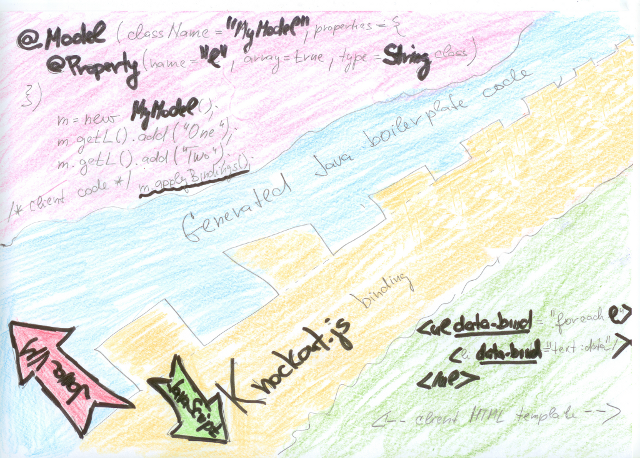 @Model (className = "MyModel", properties = {
@Property(name="l", array=true, type=String class)
})
m = new MyModel();
m.getL().add("One");
m.getL().add("Two");
/* client code */ m.applyBindings();
Generated Java boilerplate code
Knockout.js binding
Java VM
JavaScript
<ul data-bind="foreach: l>
<li data-bind="text: $data">
</ul>
<!-- client HTML template -->